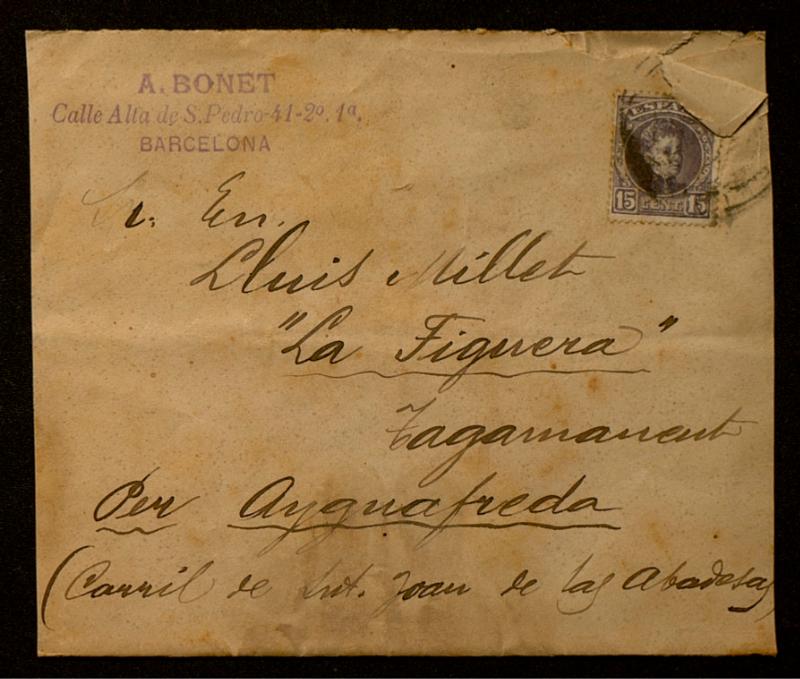 A. BONET
Calle Alta de S. Pedro-41-2º. 1ª.
BARCELONA
ESPAÑ
15 CENT 15
Sr. En.
Lluis Millet
"La Figuera"
Tagamanent
Per Ayguafreda
(Carril de Snt. Joan de las Abadesas)